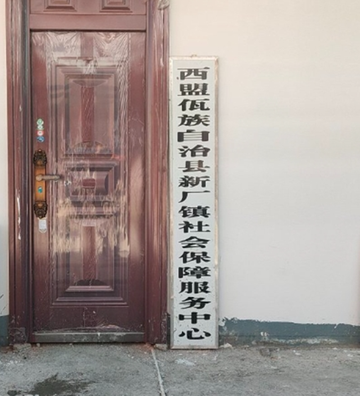 西盟佤族自治县新厂镇社会保障服务中心